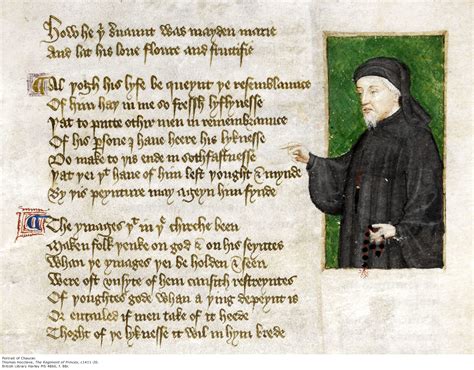 How he þͥ seruaunt was mayden marie
And lat his loue floure and fructifie
Al þogh his lyfe be queynt þe resemblaunce
Of him haþ in me so fressh lyflynesse
Þat to putte othir men in remembraunce
Of his persone I haue heere his lyknesse
Do make to þis ende in sothfastnesse
Þat þei þͭ haue of him lest þought & mynde
By þis peynture may ageyn him fynde
The ymages þͭ in þe chirche been
Maken folk þenke on god & on his seyntes
Whan þe ymages þei be holden & seen
Were oft vnsyte of hem causith restreyntes
Of þoughtes gode whan a þing depeynt is
Or entailed if men take of it heede
Thoght of þe lyknesse it wil in hym brede
Portrait of Chaucer
Thomas Hoccleve, The Regiment of Princes, c1411-20.
British Library Harley MS 4866, f. 88r.